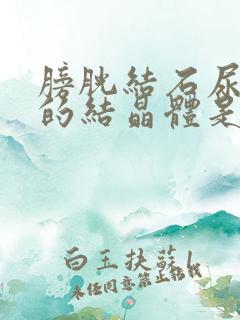 膀胱結石尿
的結晶體是
白玉扶蘇
未經同意禁止轉載